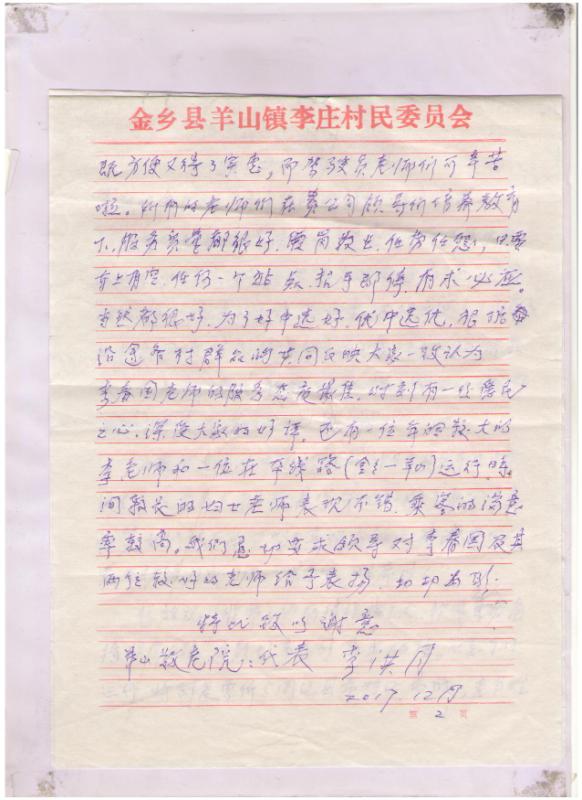 金乡县羊山镇李庄村民委员会
既方便又得了实惠，而驾驶员老师们可辛苦
啦。他们的老师们在贵公司领导们培养教育
下，服务质量都很好，爱岗敬业，任劳任怨，只要
车上有空，任何一个站点，招手即停，有求必应。
当然都很好，为了好中选好，优中选优，根据
沿途各村群众的共同反映大家一致认为
李春国老师的服务态度最佳，时刻有一些爱民
之心，深受大家的好评，还有一位年龄较大的
李老师和一位在平线路（金-羊山）运行，时
间较长的妇女老师表现不错，乘客的满意
率较高。我们恳切要求领导对李春国及其
两位较好的老师给予表扬，切切为盼。
特此致以谢意
羊山敬老院：代表 李洪月
2017.12月
第 2 页